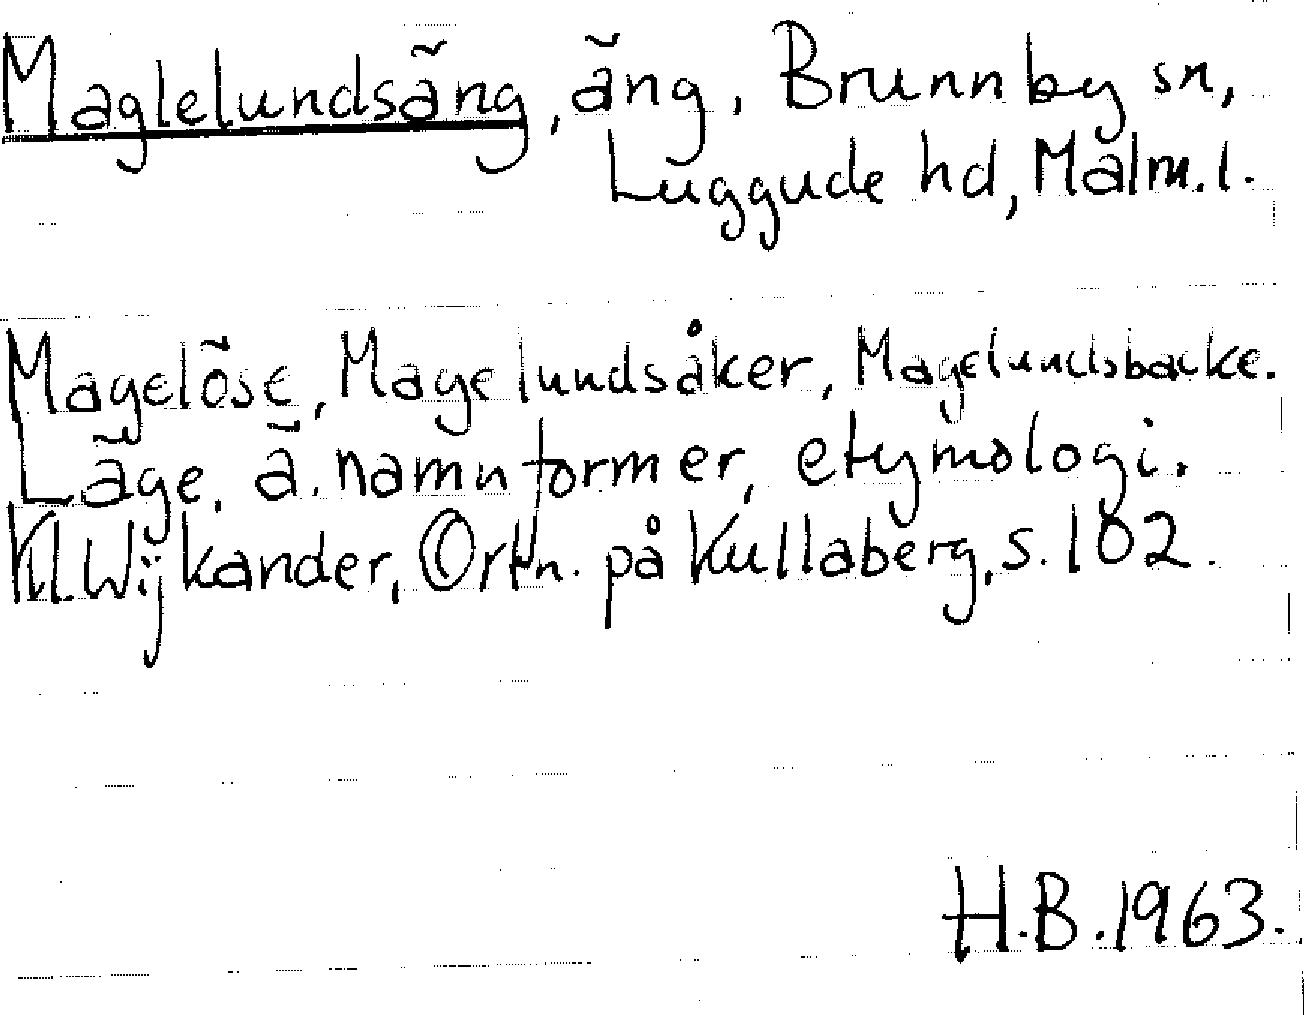 Maglelundsäng, äng, Brunnby sn,
Luggude hd, Malm.l.
Magelöse, Magelundsåker, Magelundsbacke.
Läge, ä. namnformer, etymologi.
Kl. Wijkander, Ortn. på Kullaberg, s. 102.
H.B. 1963.